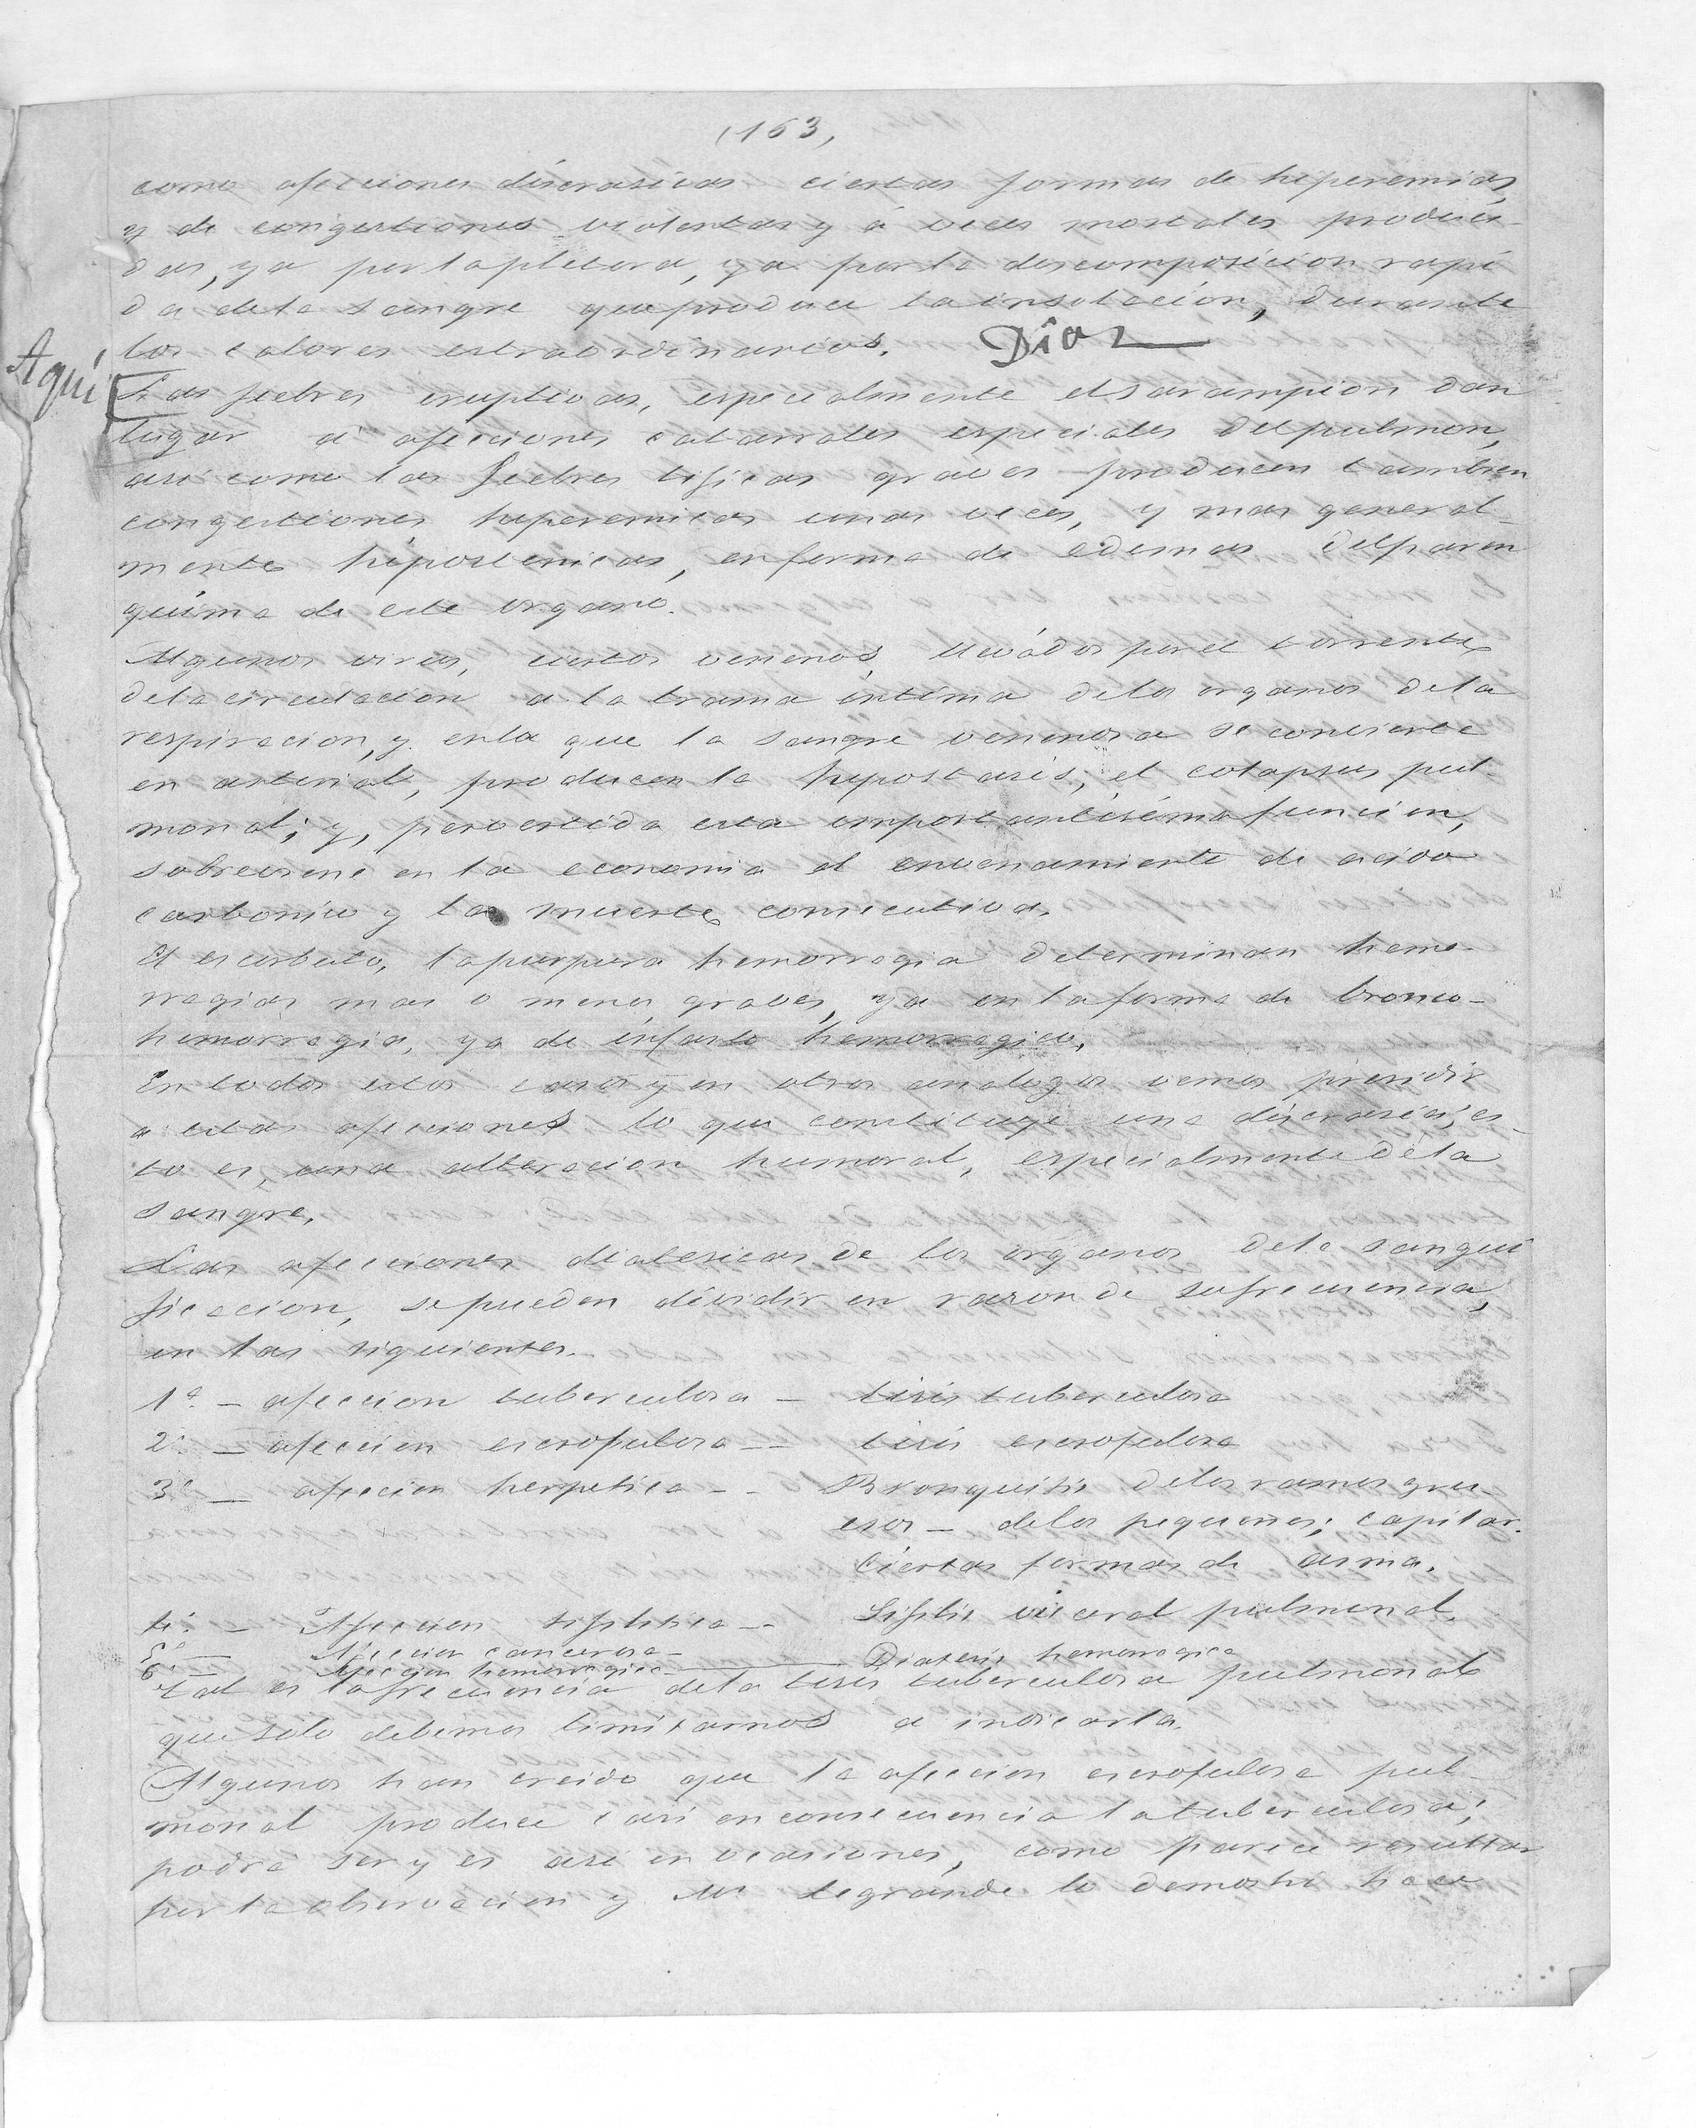 (163,
como afecciones discrasicas ciertas formas de hiperemias,
y de congestiones violentas y á veces mortales produci-
das, ya por la pletora, ya por la descomposicion rapi
da de la sangre que produce la insolacion, durante
los calores extraordinarios. Díaz
Aquí
Las fiebres eruptivas, especialmente el sarampion dan
lugar á afecciones catarrales especiales del pulmon,
asi como las fiebres tificas graves producen tambien
congestiones hiperemicas unas veces, y mas general-
mente hipostenicas, en forma de edemas del paren
quima de este organo.
Algunos virus, ciertos venenos, llevádos por el torrente
de la circulacion a la trama íntima de los organos de la
respiracion, y en la que la sangre venenosa se convierte
en arterial, producen la hipostasis, el colapsus pul-
monal; y, pervertida esta importantísima funcion,
sobreviene en la economia el envenamiento de acido
carbonico y la muerte consecutiva.
El escorbuto, la purpura hemorragia determinan hemo-
rragias mas o menos graves, ya en la forma de bronco-
hemorragia, ya de infarto hemorragico.
En todos estos casos y en otros analogos vemos presidir
a estas afecciones lo que constituye una discrasia; es-
to es, una alteracion humoral, especialmente de la
sangre.
Las afecciones diatesicas de los organos de la sangui
ficacion, se pueden dividir en razon de su frecuencia,
en las siguientes.
1ª. - afeccion tuberculosa - tisis tuberculosa
2ª. - afeccion escrofulosa -- tisis escrofulosa
3ª - afeccion herpetica - - Bronquitis de los ramos gru-
esos - de los pequeños; capilar.
Ciertas formas de asma.
4ª. - Afeccion sifilitica -- Sifilis visceral pulmonal.
5ª - Afeccion cancerosa -
6ª - Afeccion hemorragica - Diatesis hemorragica
Tal es la frecuencia de la tisis tuberculosa pulmonal
que solo debemos limitarnos a indicarla.
Algunos han creido que la afeccion escrofulosa pul-
monal produce casi en consecuencia la tuberculosa;
podrá ser y es asi en ocasiones, como parece resultar
por la observacion y Mr Legrande lo demostró hace